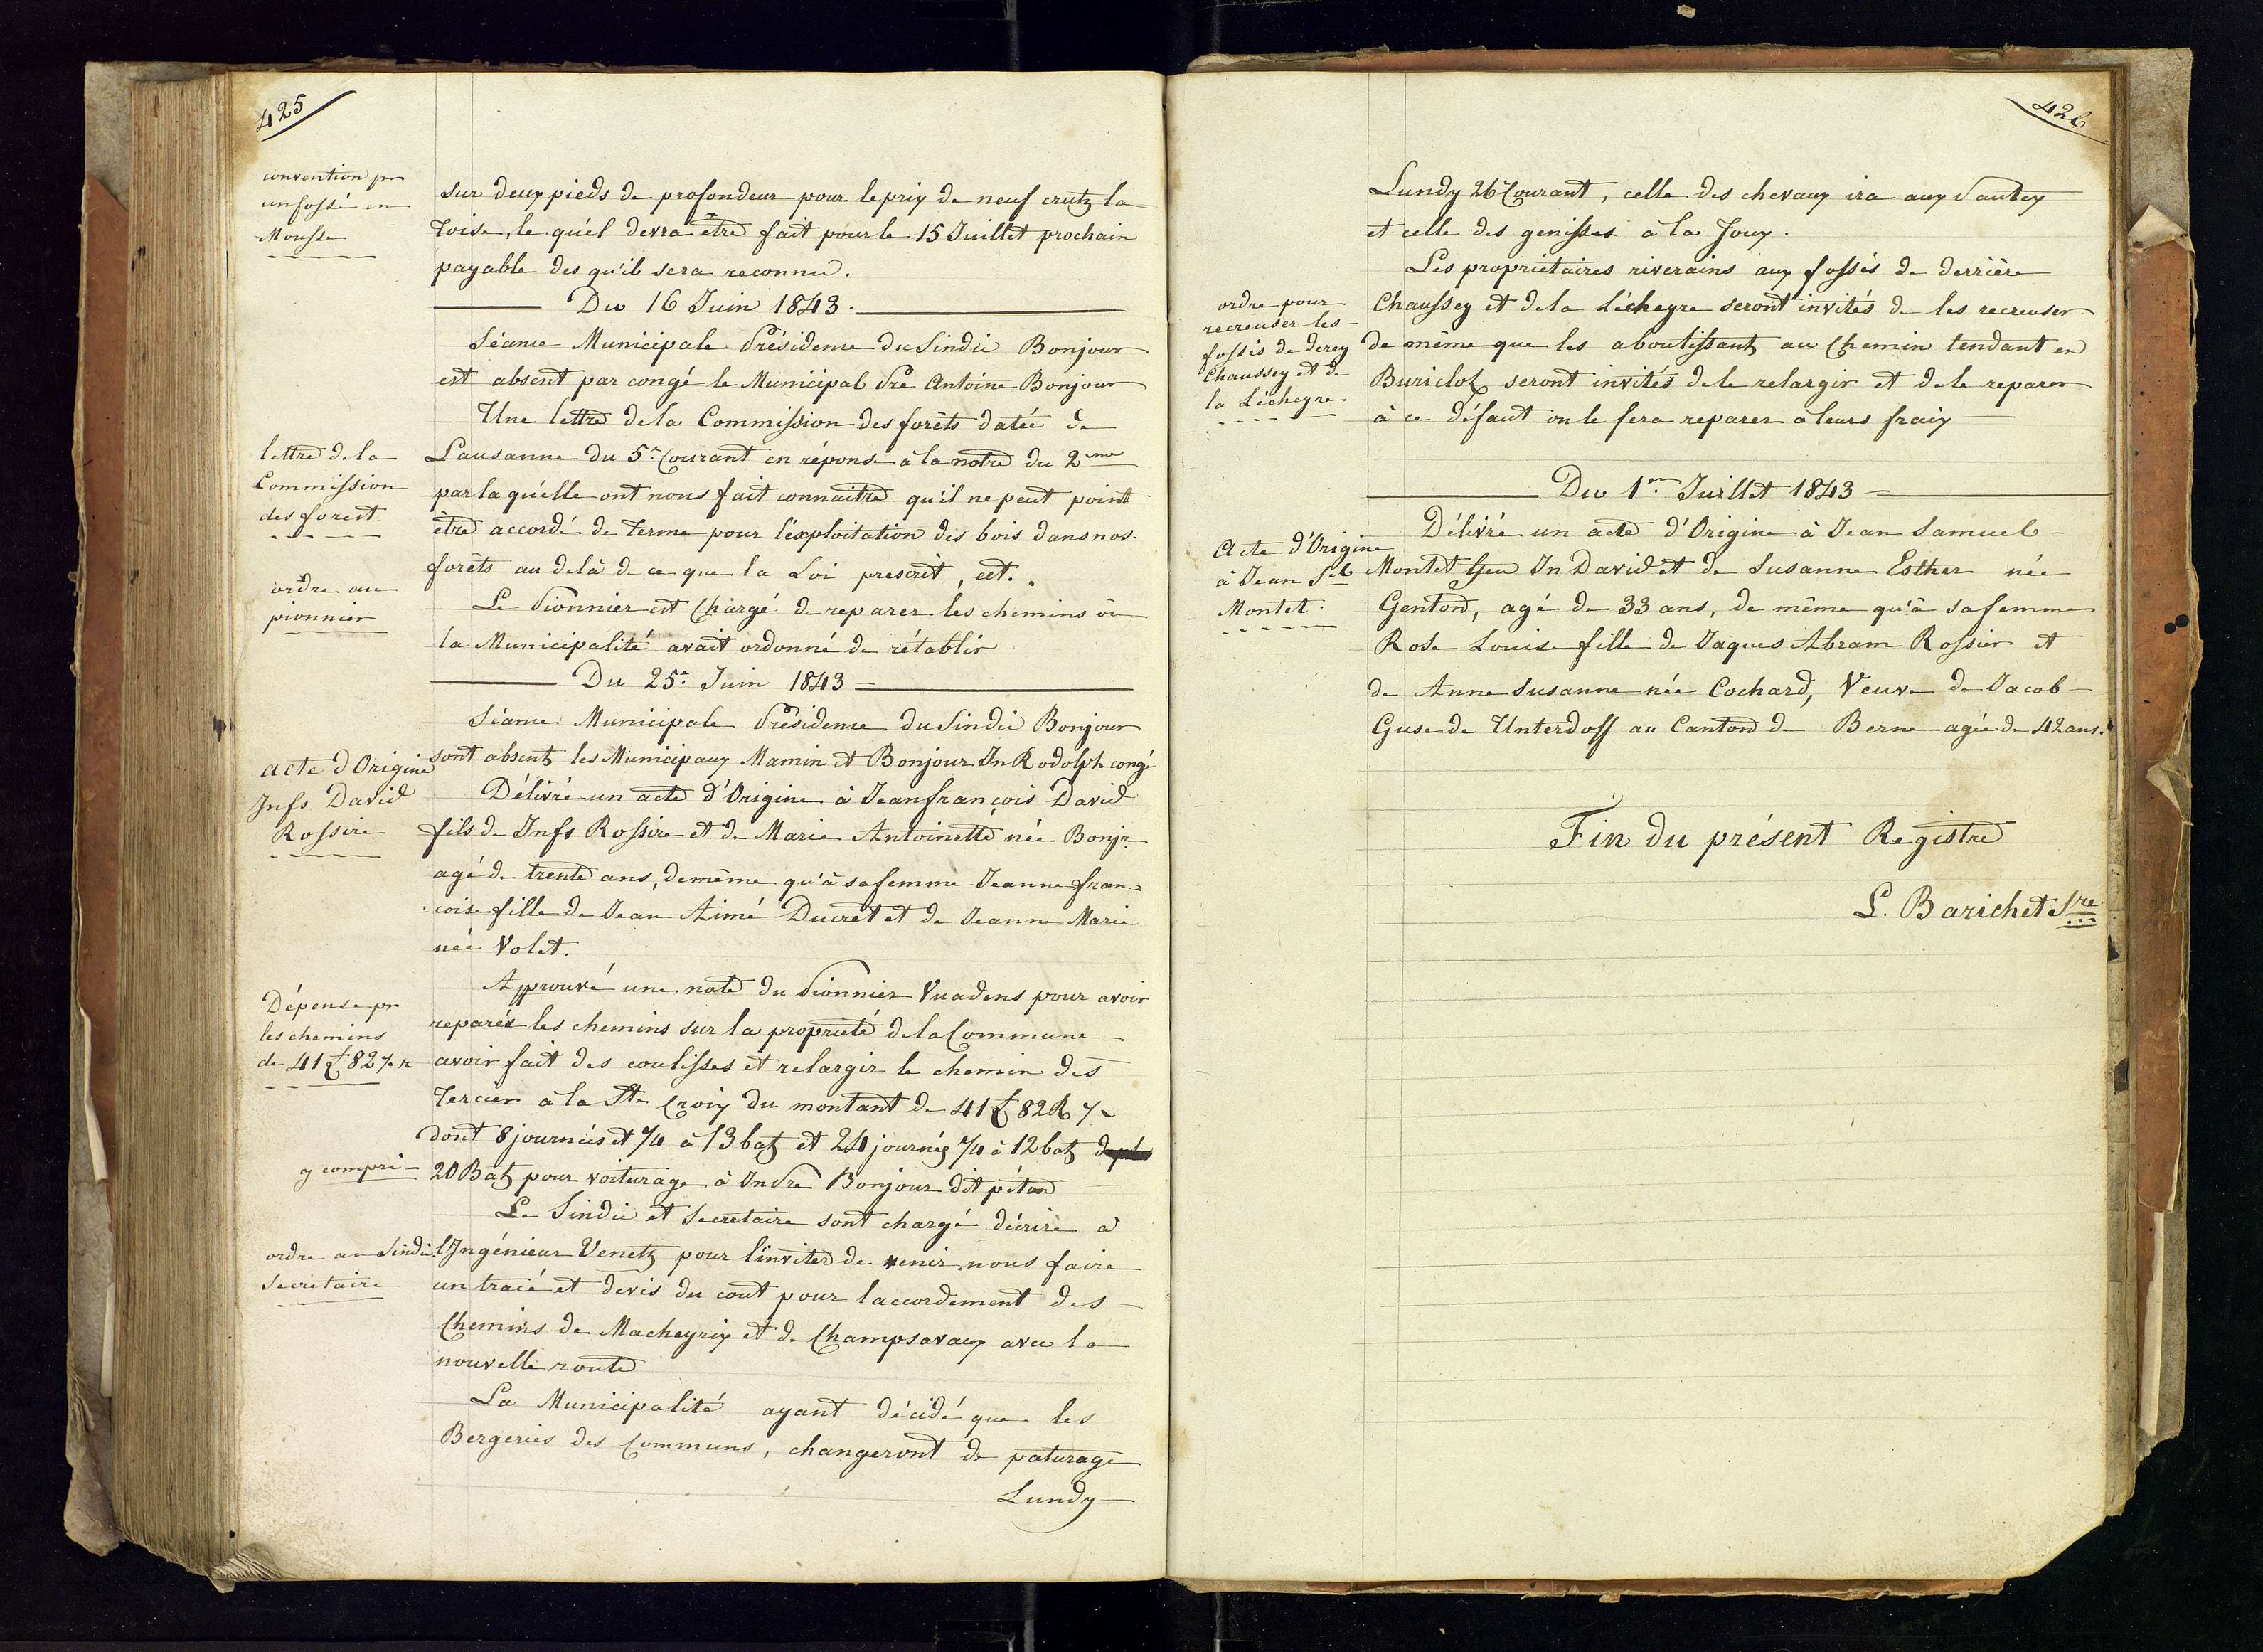 425
convention pr
un fossé en
Mousse
sur deux pieds de profondeur pour le prix de neuf crutz la
Toise, le quél devra être fait pour le 15 Juillet prochain
payable des qu'il sera reconnu.
Du 16 Juin 1843.
Séance Municipale Présidence du Sindic Bonjour
est absent par congé le Municipal Pre Antoine Bonjour
Une lettre de la Commission des forêts datée de
lettre de la
Commission
des forest.
Lausanne du 5e Courant en réponse à la notre du 2me
par la quélle ont nous fait connaitre qu'il ne peut point
être accordé de terme pour l'éxploitation des bois dans nos
forêts au delà de ce que la Loi prescrit, ect.
ordre au
pionnier
Le Pionnier est Chargé de reparer les chemins où
la Municipalité avait ordonné de rétablir
Du 25e Juin 1843
Séance Municipale Présidence du Sindic Bonjour
sont absents les Municipaux Mamin et Bonjour Jn Rodolph congé
acte d'Origine
Jnfs David
Rossire
Délivré un acte d'Origine à Jeanfrançois David
fils de Jnfs Rossire et de Marie Antoinette née Bonjr
agé de trente ans, demême qu'à sa femme Jeanne fran=
=coise fille de Jean Aimé Ducret et de Jeanne Marie
née Volet.
Dépense pr
les chemins
de 41 £ 82 ½ r
Approuvé une note du Pionnier Vuadens pour avoir
reparés les chemins sur la proprieté de la Commune
avoir fait des coulisses et relargir le chemin des
Tercier à la Ste Croix du montant de 41 £ 82 R ½
dont 8 journées et ¼ à 13 batz et 24 journés ¼ à 12 batz
y compri
20 Batz pour voiturage à Jn Pre Bonjour dit péton
Le Sindic et Secretaire sont chargé décrire à
ordre au Sindic
Secretaire
l'Ingénieur Venetz pour l'inviter de venir nous faire
un tracé et devis du cout pour laccordement des
Chemins de Macheyrix et de Champsavaux avec la
nouvelle route
La Municipalité ayant décidé que les
Bergeries des Communs, changeront de paturage
Lundy
426
Lundy 26e Courant, celle des chevaux ira aux Pautex
et celle des genisses à la Joux.
ordre pour
recreuser les
fossés de derey
Chaussey et de
la Lécheyre
Les proprietaires riverains aux fossés de derrière
Chaussey et de la Lécheyre seront invités de les recreuser
de même que les aboutissants au Chemin tendant en
Buriclot seront invités de le relargir et de le reparer
à ce défaut on le fera reparer à leurs fraix
Du 1er Juillet 1843
Acte d'Origine
à Jean Sel
Montet.
Délivré un acte d'Origine à Jean Samuel
Montet feu Jn David et de Susanne Esther née
Genton, agé de 33 ans, de même qu'à sa femme
Rose Louise fille de Jaques Abram Rossier et
de Anne Susanne née Cochard, Veuve de Jacob
Guse de Unterdoff au Canton de Berne agée de 42 ans.
Fin du présent Registre
L. Barichet Sre